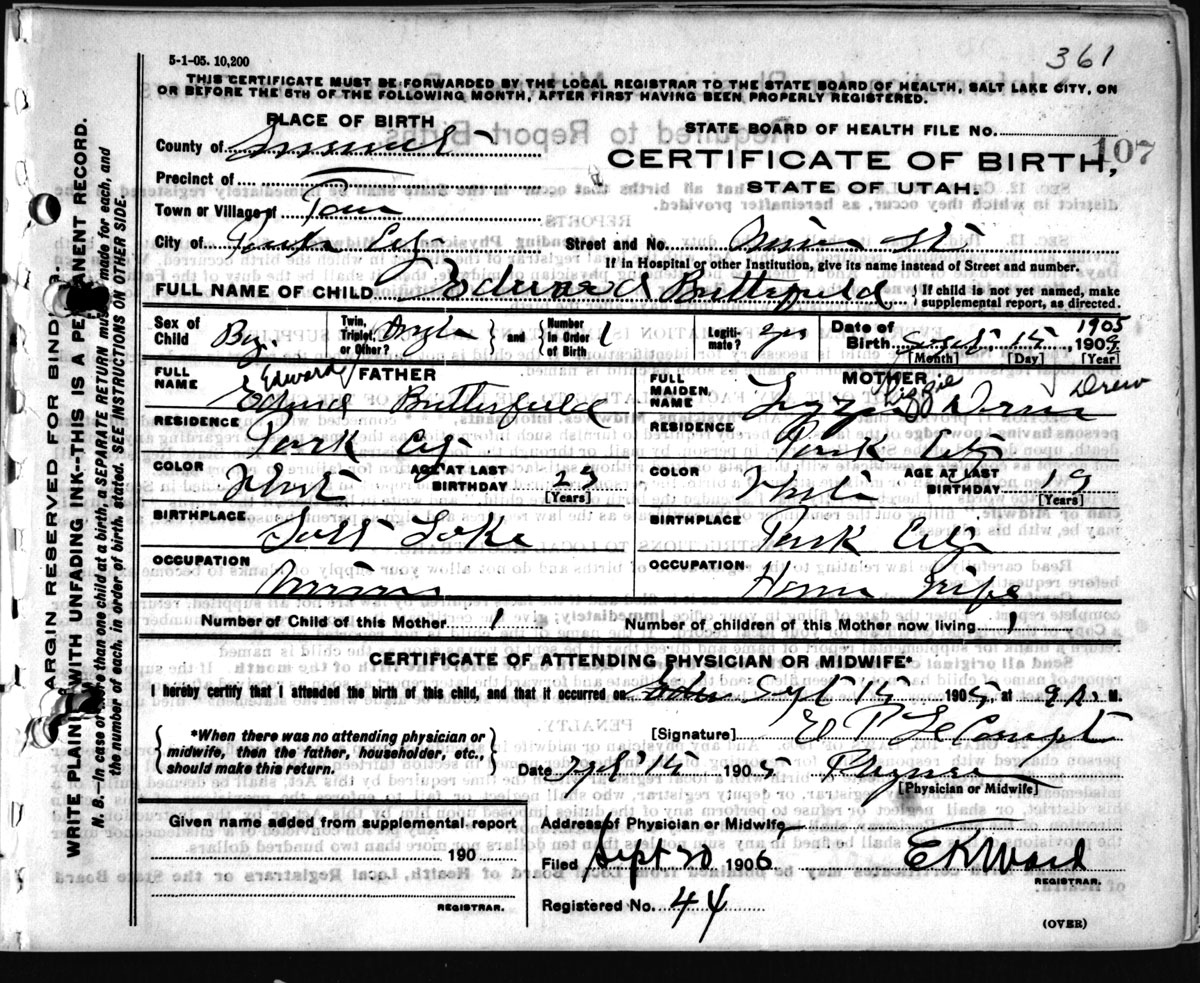 361
5-1-05. 10,200
THIS CERTIFICATE MUST BE FORWARDED BY THE LOCAL REGISTRAR TO THE STATE BOARD OF HEALTH, SALT LAKE CITY, ON
OR BEFORE THE 5TH OF THE FOLLOWING MONTH, AFTER FIRST HAVING BEEN PROPERLY REGISTERED.
PLACE OF BIRTH
STATE BOARD OF HEALTH FILE NO.
107
County of Summit
CERTIFICATE OF BIRTH,
STATE OF UTAH.
Precinct of
Town or Village of
City of Park City
Street and No.
If in Hospital or other Institution, give its name instead of Street and number.
FULL NAME OF CHILD Edward Butterfield
If child is not yet named, make supplemental report, as directed.
Sex of Child Boy
Twin, Triplet, or Other? Single and Number in Order of Birth 1
Legitimate? yes
Date of Birth Sept 15 1905 190
[Month] [Day] [Year]
FATHER
FULL NAME Edward Butterfield
MOTHER
FULL MAIDEN NAME Lizzie Drew
RESIDENCE Park City
RESIDENCE Park City
COLOR White
AGE AT LAST BIRTHDAY 25
[Years]
COLOR White
AGE AT LAST BIRTHDAY 19
[Years]
BIRTHPLACE Salt Lake
BIRTHPLACE Park City
OCCUPATION
OCCUPATION House Wife
Number of Child of this Mother 1
Number of children of this Mother now living 1
CERTIFICATE OF ATTENDING PHYSICIAN OR MIDWIFE*
I hereby certify that I attended the birth of this child, and that it occurred on Sept 15 1905, at 9 M.
*When there was no attending physician or midwife, then the father, householder, etc., should make this return.
[Signature] E P Le Compte
Date Sept 15 1905
[Physician or Midwife]
Given name added from supplemental report
190
REGISTRAR.
Address of Physician or Midwife
Filed Sept 20 1905 E K Ward
REGISTRAR.
Registered No. 44
(OVER)
MARGIN RESERVED FOR BINDER.
WRITE PLAINLY WITH UNFADING INK--THIS IS A PERMANENT RECORD.
N. B.--In case of more than one child at a birth, a SEPARATE RETURN must be made for each, and
the number of each, in order of birth stated. SEE INSTRUCTIONS ON OTHER SIDE.